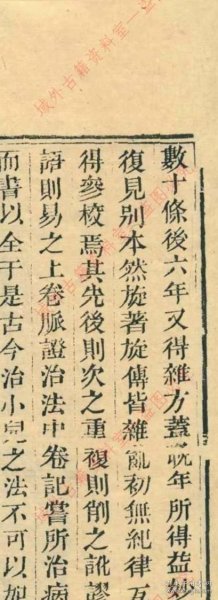 數十條後六年又得雜方蓋晩年所得益妙
復見別本然旋著旋傳皆雜亂初無紀律互
得參校焉其先後則次之重複則削之訛謬
語則易之上卷脈證治法中卷記嘗所治病
而書以全于是古今治小兒之法不可以加